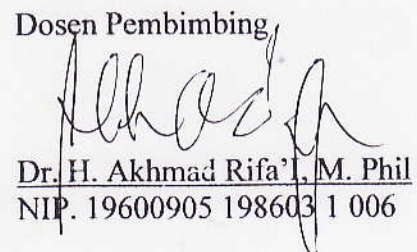 Dosen Pembimbing
Dr. H. Akhmad Rifa'I, M. Phil
NIP. 19600905 198603 1 006